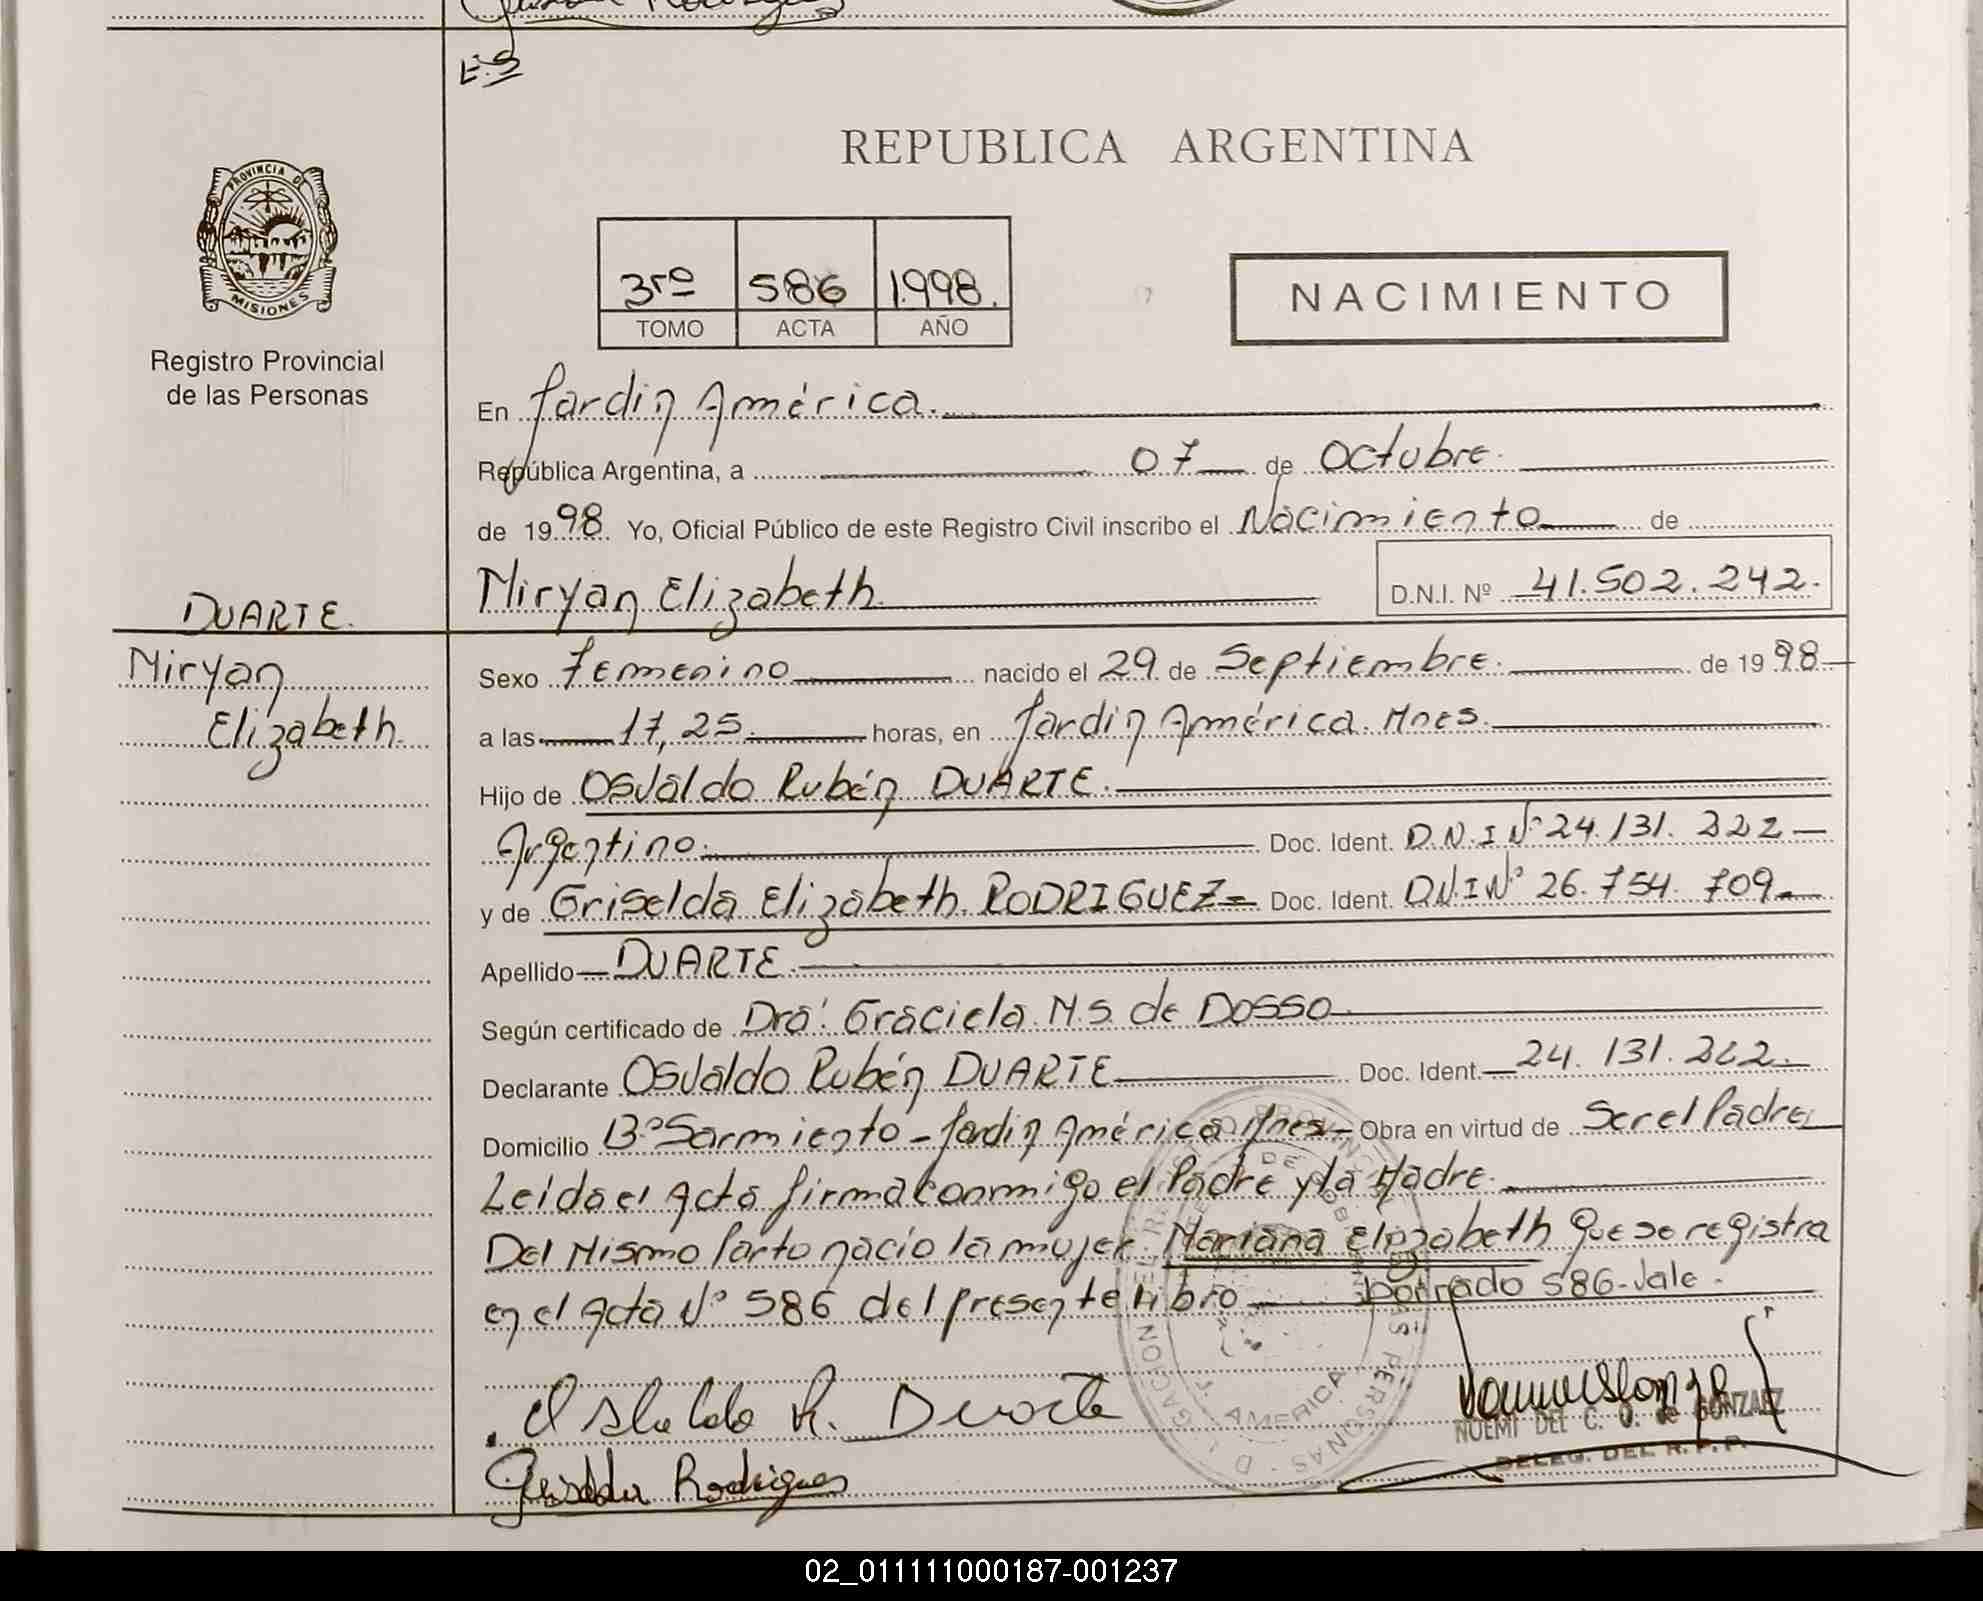 E.S
REPUBLICA ARGENTINA
PROVINCIA DE
MISIONES
Registro Provincial
de las Personas
3ro 586 1.998.
TOMO ACTA AÑO
NACIMIENTO
En Jardin América.
República Argentina, a 07 de Octubre.
de 1998. Yo, Oficial Público de este Registro Civil inscribo el Nacimiento de
Miryan Elizabeth. D.N.I. Nº 41.502.242.
DUARTE.
Miryan
Elizabeth.
Sexo Femenino nacido el 29 de Septiembre. de 1998
a las 17,25. horas, en Jardin América. Mnes.
Hijo de Osvaldo Rubén DUARTE.
Argentino. Doc. Ident. D.N.I Nº 24.131.222
y de Griselda Elizabeth. RODRIGUEZ= Doc. Ident. D.N.I Nº 26.754.709
Apellido DUARTE.
Según certificado de Dra. Graciela M.S. de DOSSO
Declarante Osvaldo Rubén DUARTE Doc. Ident. 24.131.222.
Domicilio Bº Sarmiento - Jardin América Mnes - Obra en virtud de Ser el Padre
Leida el Acta firma conmigo el Padre y la Madre.
Del Mismo Parto nacio la mujer Mariana Elizabeth que se registra
en el Acta Nº 586 del presente libro borrado 586-Vale.
Osbaldo R. Duarte
Griselda Rodrigues
NOEMI DEL C. O. de GONZALEZ
DELEG. DEL R. P. P.
02_011111000187-001237